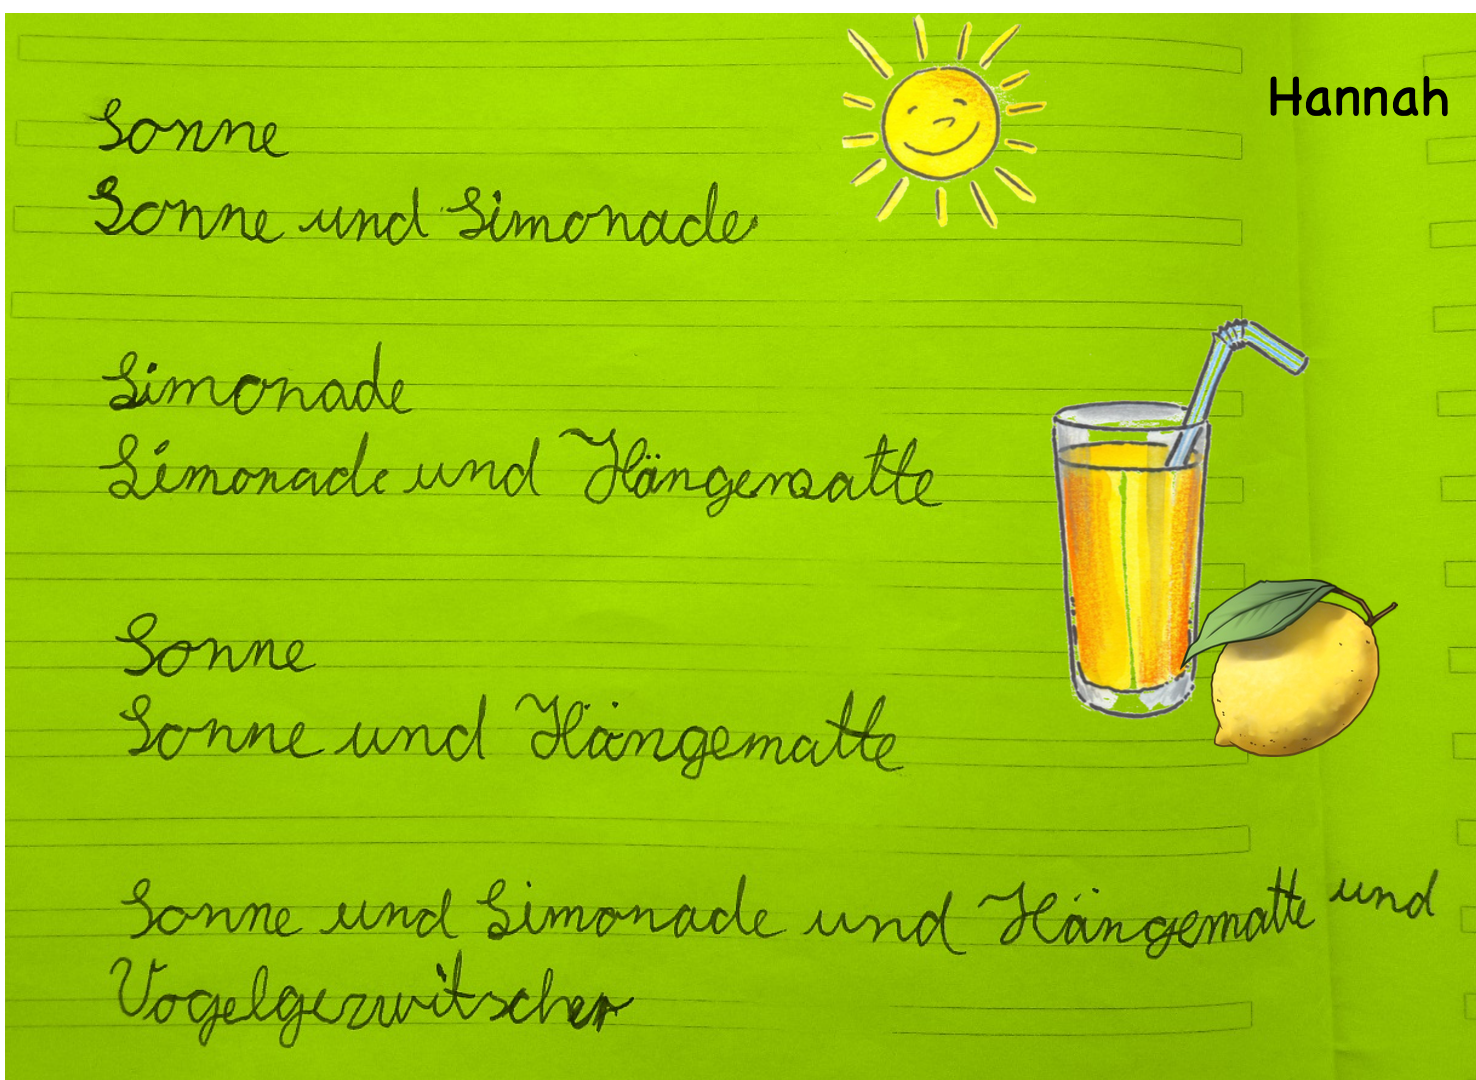 Hannah
Sonne
Sonne und Limonade
Limonade
Limonade und Hängematte
Sonne
Sonne und Hängematte
Sonne und Limonade und Hängematte und
Vogelgezwitscher